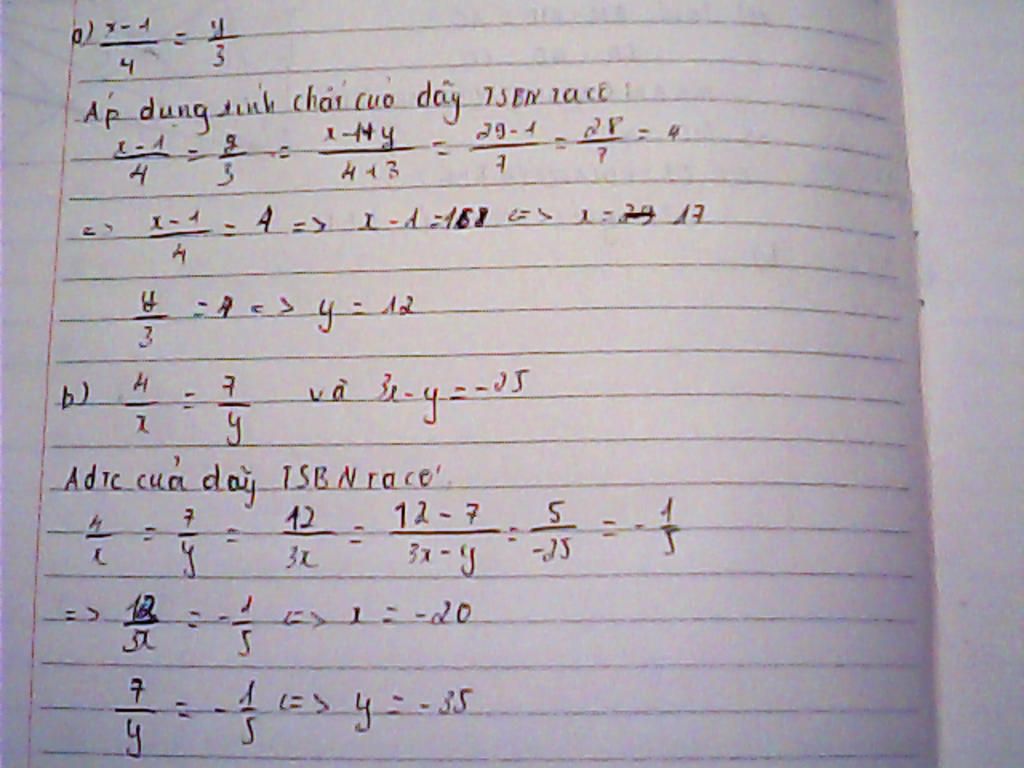 a) x-1/4 = y/3
Áp dụng tính chất của dãy TSBN ta có
x-1/4 = y/3 = x-1+y/4+3 = 29-1/7 = 28/7 = 4
=> x-1/4 = 4 => x-1=16 <=> x= 17
y/3 = 4 <=> y = 12
b) 4/x = 7/y và 3x-y = -25
Adtc của dãy TSBN ta có:
4/x = 7/y = 12/3x = 12-7/3x-y = 5/-25 = -1/5
=> 12/3x = -1/5 <=> x = -20
7/y = -1/5 <=> y = -35